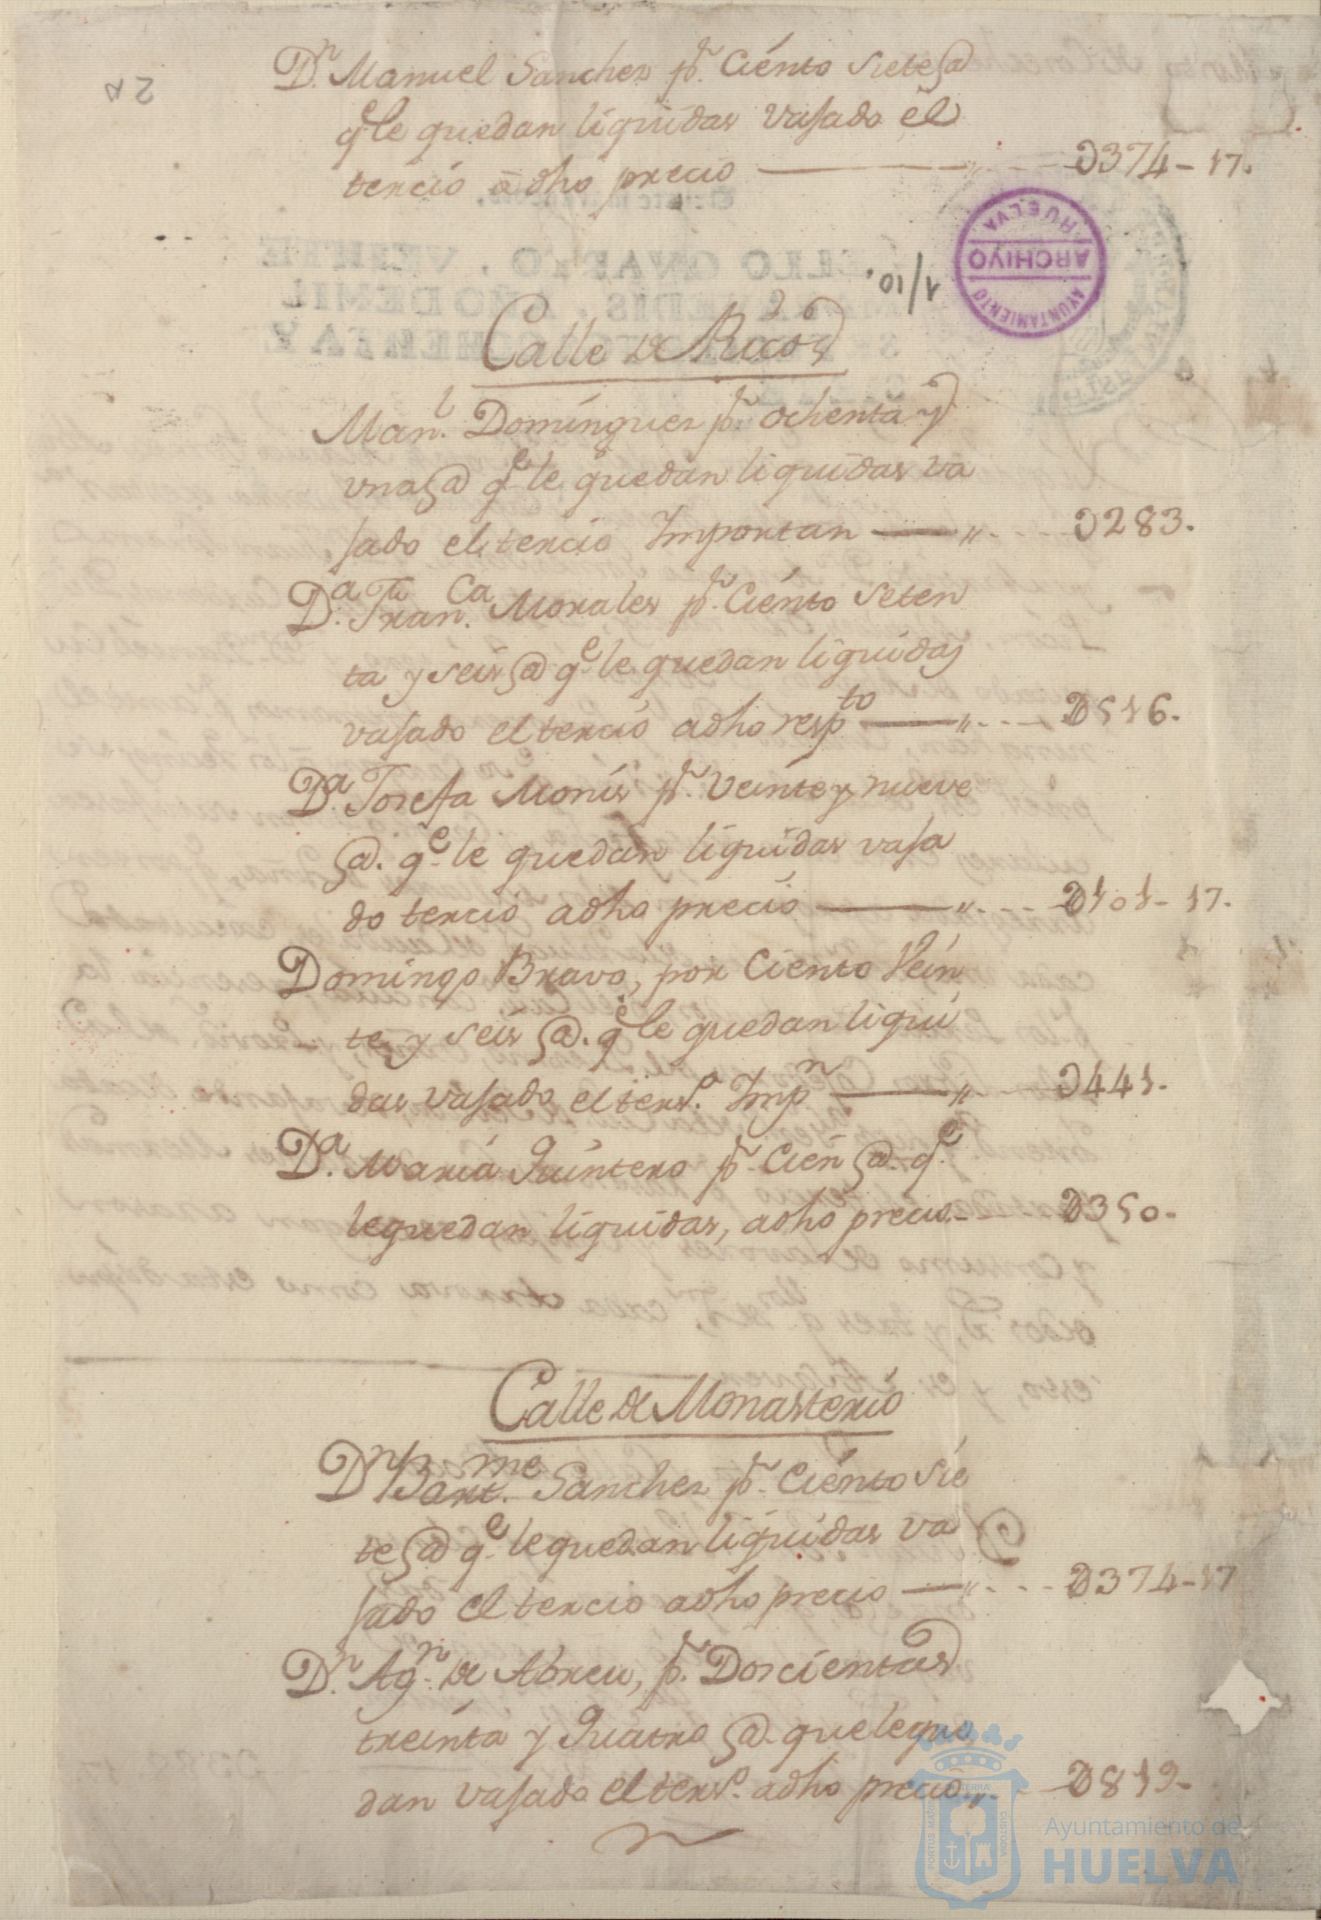 Dn. Manuel Sanchez pr. Ciénto siete @
qe le quedan liquidas vasado el
tercio a dho precio — " — D374-17.
1/10.
AYUNTAMIENTO
ARCHIVO
HUELVA
Calle de Ricos
Manl. Dominguez pr. ochenta y
una @ qe le quedan liquidas va
sado el tercio Importan — " — D283.
Da. Franca. Morales pr. Ciénto seten
ta y seis @ qe le quedan liquidas
vasado el tercio adho respto — " — D616.
Da. Josefa Monis pr. veinte y nueve
@. qe le quedan liquidas vasa
do tercio adho precio — " — D101-17.
Domingo Bravo, por Ciento Vein
te y seis @. qe le quedan liqui
das vasado el terso. Impn — " — D441.
Da. Maria Quintero pr. Cien @. qe
lequedan liquidas, adho precio — D350.
Calle de Monasterio
Dn Bartme. Sanchez pr. Ciénto sie
te @ qe lequedan liquidas va
sado el tercio adho precio — " — D374-17
Dn. Agn. de Abreu, pr. Doscientas
treinta y Quatro @. que leque
dan vasado el terso. adho precio " — D819.
PORTUS MARIS
TERRAE
CUSTODIA
Ayuntamiento de
HUELVA